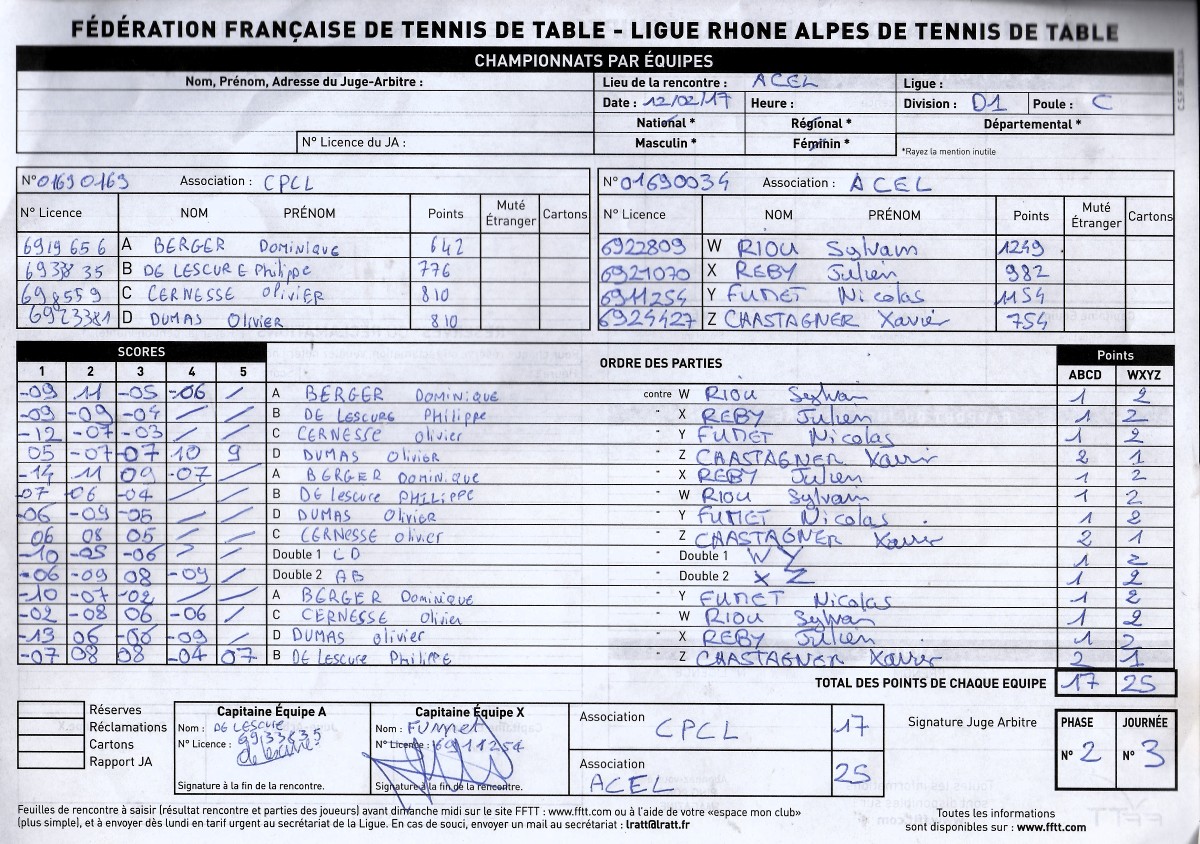 FÉDÉRATION FRANÇAISE DE TENNIS DE TABLE - LIGUE RHONE ALPES DE TENNIS DE TABLE
CHAMPIONNATS PAR ÉQUIPES
Nom, Prénom, Adresse du Juge-Arbitre :
N° Licence du JA :
Lieu de la rencontre : ACEL Ligue :
Date : 12/02/17 Heure : Division : D1 Poule : C
National * Régional * Départemental *
Masculin * Féminin * *Rayez la mention inutile
N° 01690169 Association : CPCL
N° Licence NOM PRÉNOM Points Muté Étranger Cartons
6919656 A BERGER Dominique 642
693835 B DE LESCURE Philippe 776
698559 C CERNESSE Olivier 810
6923381 D DUMAS Olivier 810
N° 01690034 Association : ACEL
N° Licence NOM PRÉNOM Points Muté Étranger Cartons
6922809 W RIOU Sylvain 1249
6921070 X REBY Julien 982
6911254 Y FUMET Nicolas 1154
6924427 Z CHASTAGNER Xavier 754
SCORES ORDRE DES PARTIES Points
1 2 3 4 5 ABCD WXYZ
-09 11 -05 -06 A BERGER Dominique contre W RIOU Sylvain 1 2
-09 -09 -04 / / B DE LESCURE Philippe " X REBY Julien 1 2
-12 -07 -03 / / C CERNESSE Olivier " Y FUMET Nicolas 1 2
05 -07 -07 10 9 D DUMAS Olivier " Z CHASTAGNER Xavier 2 1
-14 11 09 -07 / A BERGER Dominique " X REBY Julien 1 2
-07 -06 -04 / / B DE Lescure PHILIPPE " W RIOU Sylvain 1 2
-06 -09 -05 / / D DUMAS Olivier " Y FUMET Nicolas 1 2
06 08 05 / / C CERNESSE olivier " Z CHASTAGNER Xavier 2 1
-10 -06 / / Double 1 CD " Double 1 WY 1 2
-06 -09 08 -09 / Double 2 AB " Double 2 XZ 1 2
-10 -07 -02 / / A BERGER Dominique " Y FUMET Nicolas 1 2
-02 -08 06 -06 / C CERNESSE Olivier " W RIOU Sylvain 1 2
-13 06 -06 -09 / D DUMAS olivier " X REBY Julien 1 2
-07 08 08 -04 07 B DE Lescure Philippe " Z CHASTAGNER Xavier 2 1
TOTAL DES POINTS DE CHAQUE EQUIPE 17 25
Réserves
Réclamations
Cartons
Rapport JA
Capitaine Équipe A
Nom : DE LESCURE
N° Licence : 6933835
de lescure
Signature à la fin de la rencontre.
Capitaine Équipe X
Nom : FUMET
N° Licence : 6911254
Signature à la fin de la rencontre.
Association CPCL 17
Association ACEL 25
Signature Juge Arbitre
PHASE N° 2
JOURNÉE N° 3
Feuilles de rencontre à saisir (résultat rencontre et parties des joueurs) avant dimanche midi sur le site FFTT : www.fftt.com ou à l'aide de votre «espace mon club»
(plus simple), et à envoyer dès lundi en tarif urgent au secrétariat de la Ligue. En cas de souci, envoyer un mail au secrétariat : lratt@lratt.fr
Toutes les informations
sont disponibles sur : www.fftt.com